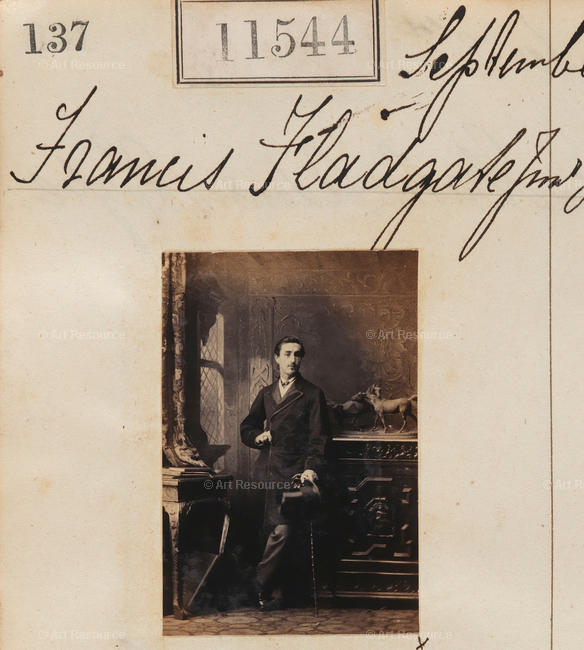 137
11544
September
Francis Fladgate Junr
© Art Resource
© Art Resource
© Art Resource
© Art Resource
© Art Resource
© Art Resource
© Art Resource
© Art Resource
© Art Resource